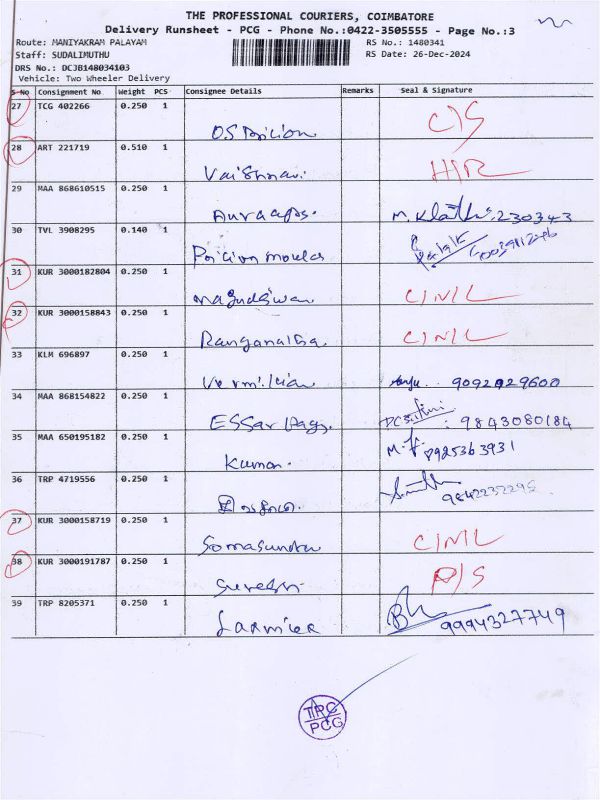 THE PROFESSIONAL COURIERS, COIMBATORE
Delivery Runsheet - PCG - Phone No.:0422-3505555 - Page No.:3
Route: MANIYAKRAM PALAYAM
RS No.: 1480341
Staff: SUDALIMUTHU
RS Date: 26-Dec-2024
DRS No.: DCJB148034103
Vehicle: Two Wheeler Delivery
S No Consignment No Weight PCS Consignee Details Remarks Seal & Signature
27 TCG 402266 0.250 1 C/S
28 ART 221719 0.510 1 H/R
Vaishnavi
29 MAA 868610515 0.250 1
M. 230343
30 TVL 3908295 0.140 1
31 KUR 3000182804 0.250 1
C/N/L
32 KUR 3000158843 0.250 1
Ranganatha C/N/L
33 KLM 696897 0.250 1
9092929600
34 MAA 868154822 0.250 1
ESSar 9843080184
35 MAA 650195182 0.250 1
Kumar. 8925363931
36 TRP 4719556 0.250 1
9842232295
37 KUR 3000158719 0.250 1
Somasundra C/N/L
38 KUR 3000191787 0.250 1
Suresh D/S
39 TRP 8205371 0.250 1
9994327749
TPC
PCG